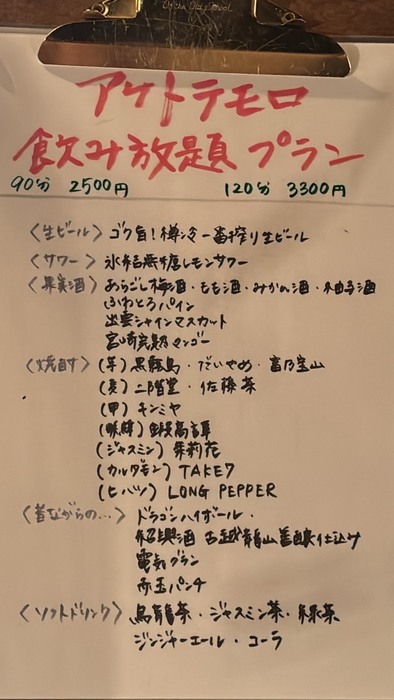 アケトテモロ
飲み放題 プラン
90分 2500円 120分 3300円
〈生ビール〉 ゴク旨！樽冷 一番搾り生ビール
〈サワー〉 氷結無糖レモンサワー
〈果実酒〉 あらごし梅酒・もも酒・みかん酒・柚子酒
ふわとろパイン
出雲シャインマスカット
宮崎完熟マンゴー
〈焼酎〉 (芋) 黒霧島・だいやめ・富乃宝山
(麦) 二階堂・佐藤 麦
(甲) キンミヤ
鍛高譚
(ジャスミン) 茉莉花
(カルダモン) TAKE7
(ヒハツ) LONG PEPPER
〈昔ながらの…〉 ドラゴンハイボール・
紹興酒 古越龍山 善醸仕込み
電気ブラン
赤玉パンチ
〈ソフトドリンク〉 烏龍茶・ジャスミン茶・緑茶
ジンジャーエール・コーラ